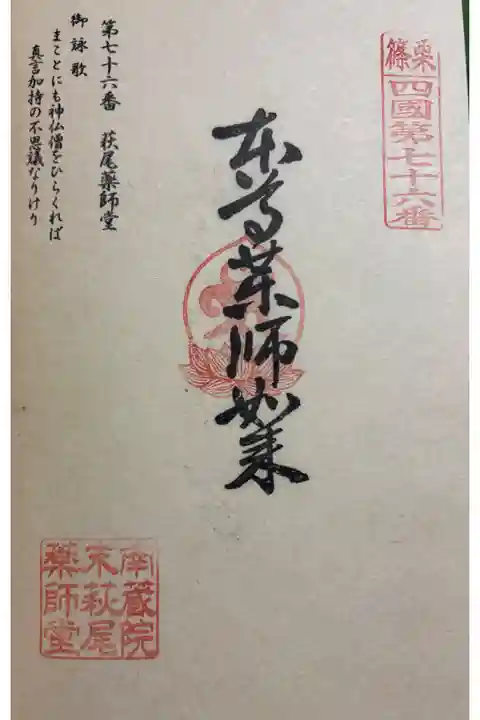 篠栗
四國第七十六番
本尊薬師如来
第七十六番 萩尾薬師堂
御詠歌
まことにも神仏僧をひらくれば
真言加持の不思議なりけり
南蔵院
末萩尾
薬師堂